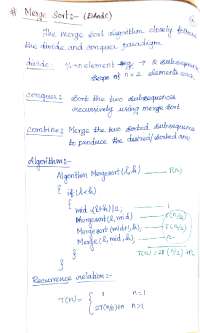 # Merge Sort :- (DAndC)
The merge sort algorithm closely follows
the divide and conquer paradigm.
divide : n-element → 2 subsequences
of n/2 elements each.
conquer : Sort the two subsequences
recursively using merge sort
combine : Merge the two sorted subsequences
to produce the desired/sorted ans
Algorithm :-
Algorithm Mergesort(l, h) — T(n)
{ if (l<h)
{
mid = (l+h)/2; — 1
Mergesort(l, mid) — T(n/2)
Mergesort(mid+1, h) — T(n/2)
Merge(l, mid, h) — n
}
} T(n) = 2T(n/2)+n
Recurrence relation :-
T(n) = { 1 n=1
2T(n/2)+n n>1